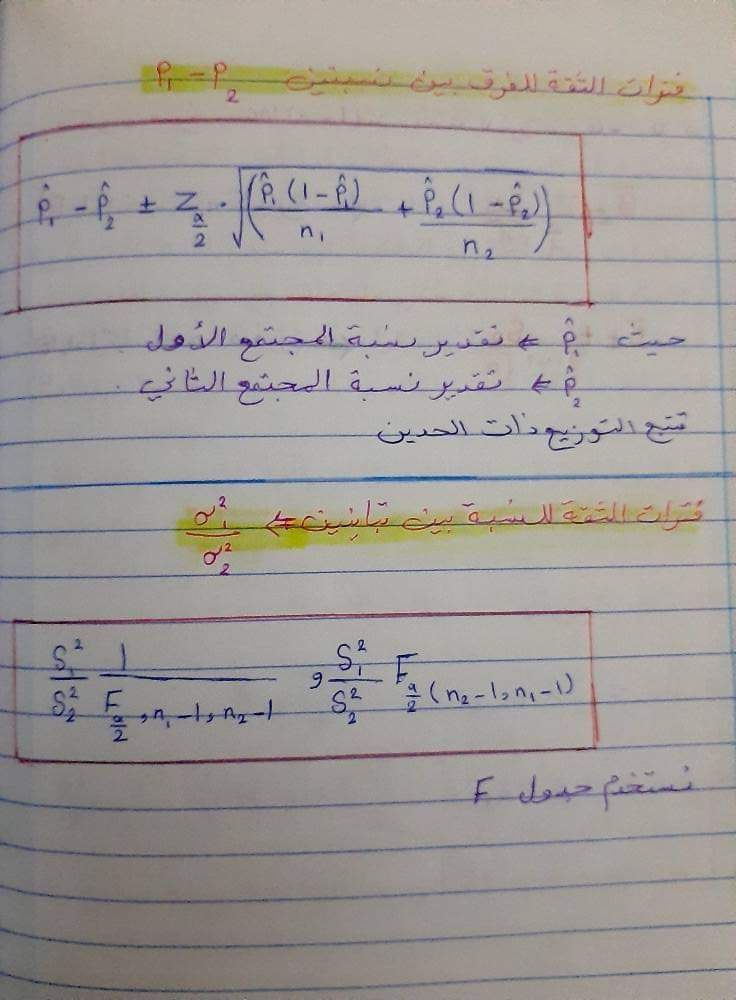 فترات الثقة للفرق بين نسبتين P₁ - P₂
p̂₁ - p̂₂ ± Z_{α/2} · √(p̂₁(1-p̂₁)/n₁ + p̂₂(1-p̂₂)/n₂)
حيث p̂₁ ← تقدير نسبة المجتمع الأول
p̂₂ ← تقدير نسبة المجتمع الثاني .
تتبع التوزيع ذات الحدين
فترات الثقة للنسبة بين تباينين ← σ₁²/σ₂²
S₁²/S₂² 1/F_{α/2, n₁-1, n₂-1} و S₁²/S₂² F_{α/2 (n₂-1, n₁-1)}
نستخدم جدول F